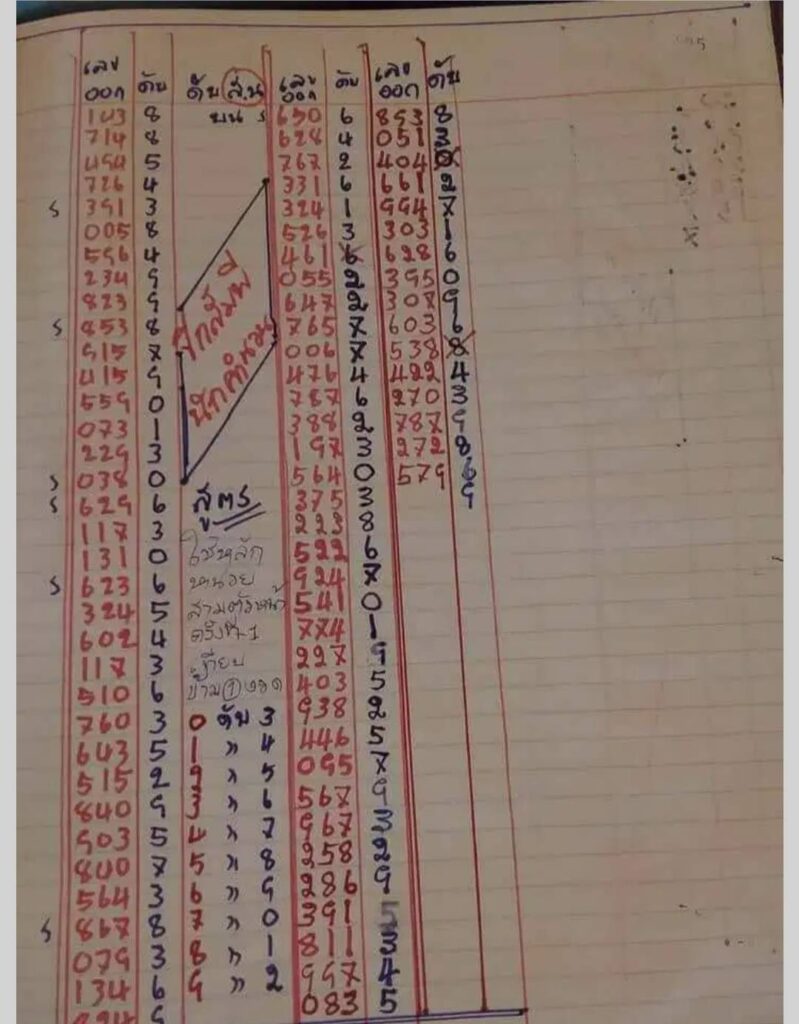 เลข ดับ
ออก
143 8
714 8
494 5
726 4
ร 391 3
005 8
596 4
234 9
823 9
ร 853 8
915 7
415 9
559 0
073 1
229 3
ร 038 0
ร 629 6
117 3
131 0
ร 623 6
324 5
602 4
117 3
510 6
760 3
643 5
515 2
840 9
903 5
840 7
564 3
ร 867 8
079 3
134 6
ดับ ส.น
บน ร
นักคำนวน
สูตร
ใช้หลัก
หน่วย
สามตัวหน้า
ข้าม 1 งวด
0 ดับ 3
1 " 4
2 " 5
3 " 6
4 " 7
5 " 8
6 " 9
7 " 0
8 " 1
9 " 2
เลข ดับ
ออก
6
628 4
767 2
331 6
324 1
526 3
461 6
055 2
647 2
765 7
006 7
476 4
787 6
388 2
197 3
564 0
375 3
223 8
522 6
924 7
541 0
774 1
227 9
403 5
938 2
446 5
095 7
567 9
967 3
258 2
286 9
391 5
811 3
997 4
083 5
เลข ดับ
ออก
893 8
051 3
404 0
661 2
994 7
303 1
628 6
395 0
307 9
603 6
538 8
422 4
270 3
787 9
272 8
579 6
9